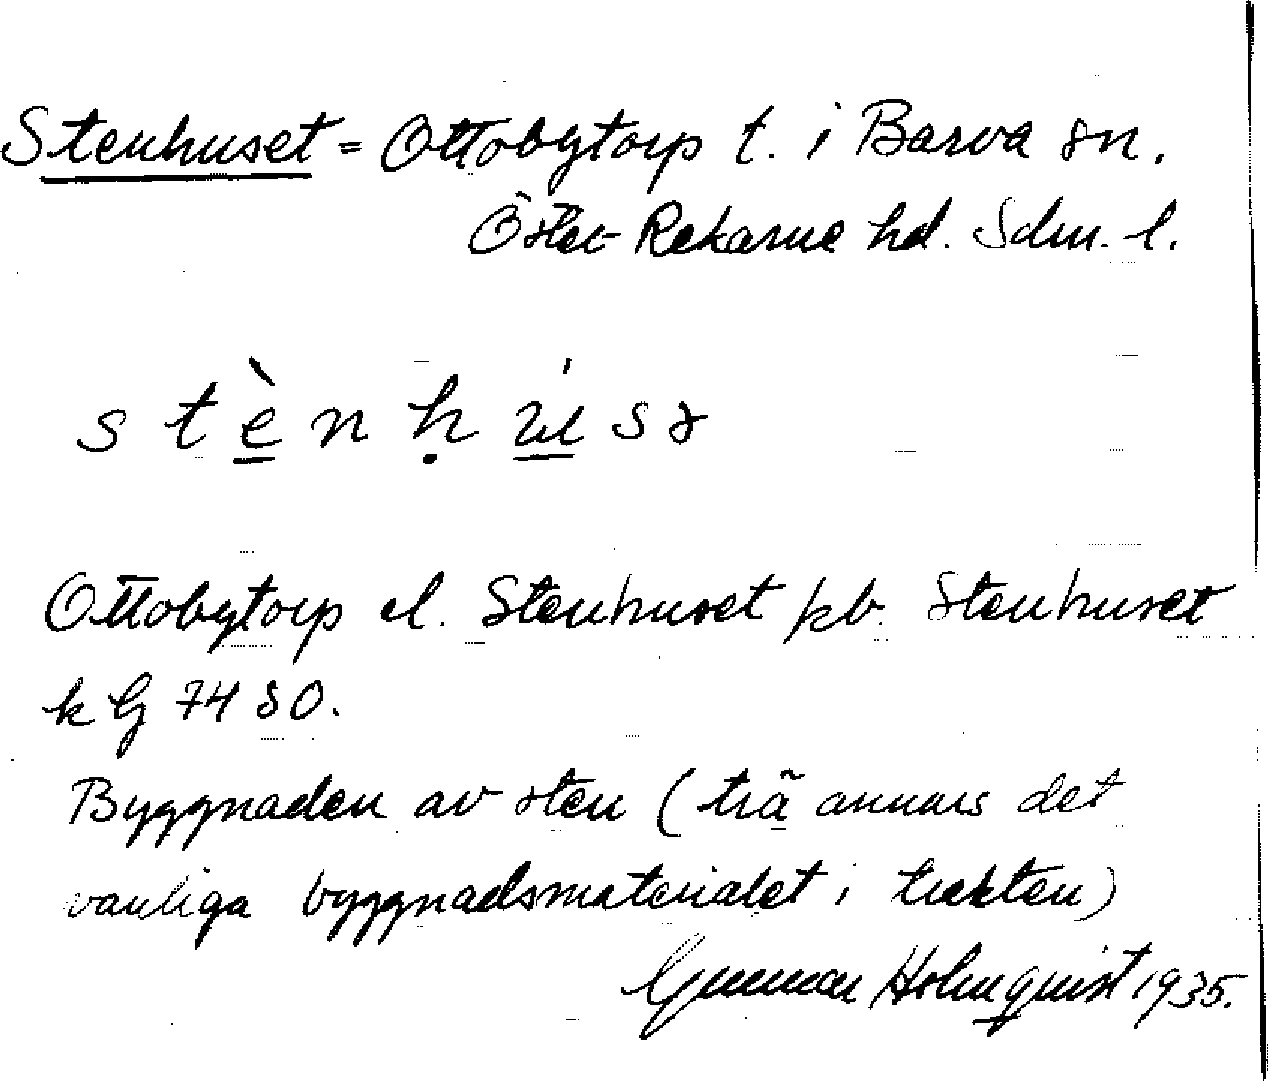 Stenhuset = Ottobytorp t. i Barva sn.
Öster Rekarne hd. Sdm. l.
stènḥúsə
Ottobytorp el. Stenhuset jkb. Stenhuset
k G 7480.
Byggnaden av sten (trä annars det
vanliga byggnadsmaterialet i trakten)
Gunnar Holmquist 1935.